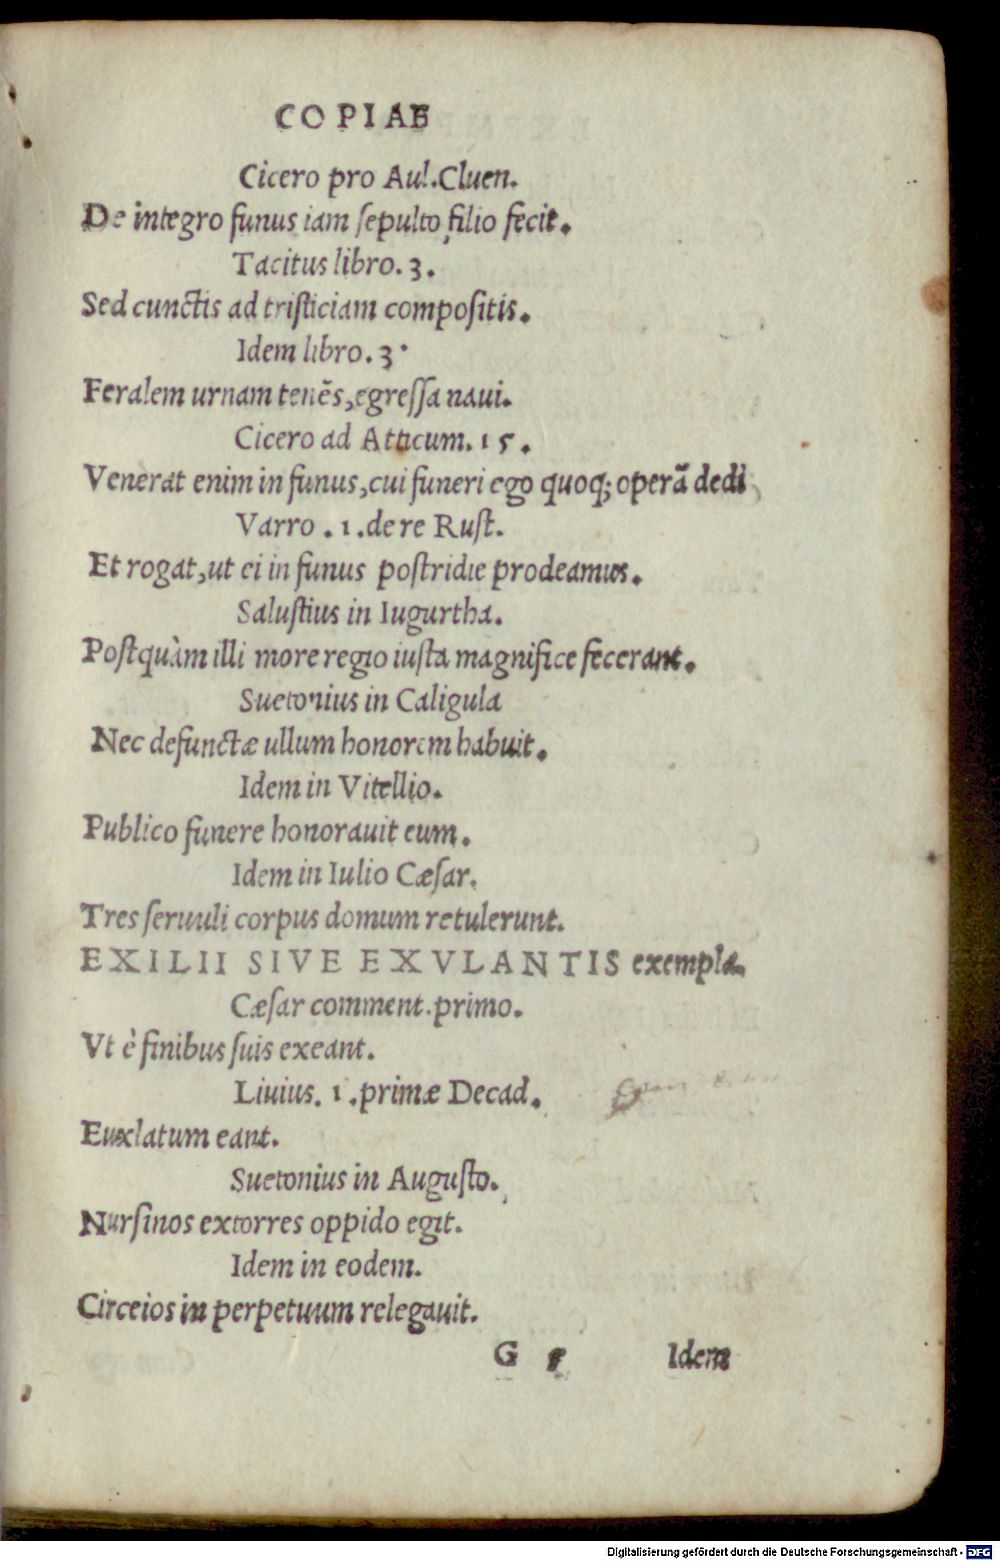 COPIAE
Cicero pro Aul.Cluen.
De integro funus iam ſepulto filio fecit.
Tacitus libro.3.
Sed cunctis ad triſticiam compoſitis.
Idem libro.3.
Feralem urnam tenẽs,egreſſa naui.
Cicero ad Atticum.15.
Venerat enim in funus,cui funeri ego quoq; operã dedi
Varro .1.de re Ruſt.
Et rogat,ut ei in funus poſtridie prodeamus.
Saluſtius in Iugurtha.
Poſtquàm illi more regio iuſta magnifice fecerant.
Suetonius in Caligula
Nec defunctæ ullum honorem habuit.
Idem in Vitellio.
Publico funere honorauit eum.
Idem in Iulio Cæſar.
Tres ſeruuli corpus domum retulerunt.
EXILII SIVE EXVLANTIS exempla.
Cæſar comment.primo.
Vt è finibus ſuis exeant.
Liuius.1.primæ Decad.
Exulatum eant.
Suetonius in Auguſto.
Nurſinos extorres oppido egit.
Idem in eodem.
Circeios in perpetuum relegauit.
G Idem
Digitalisierung gefördert durch die Deutsche Forschungsgemeinschaft - DFG